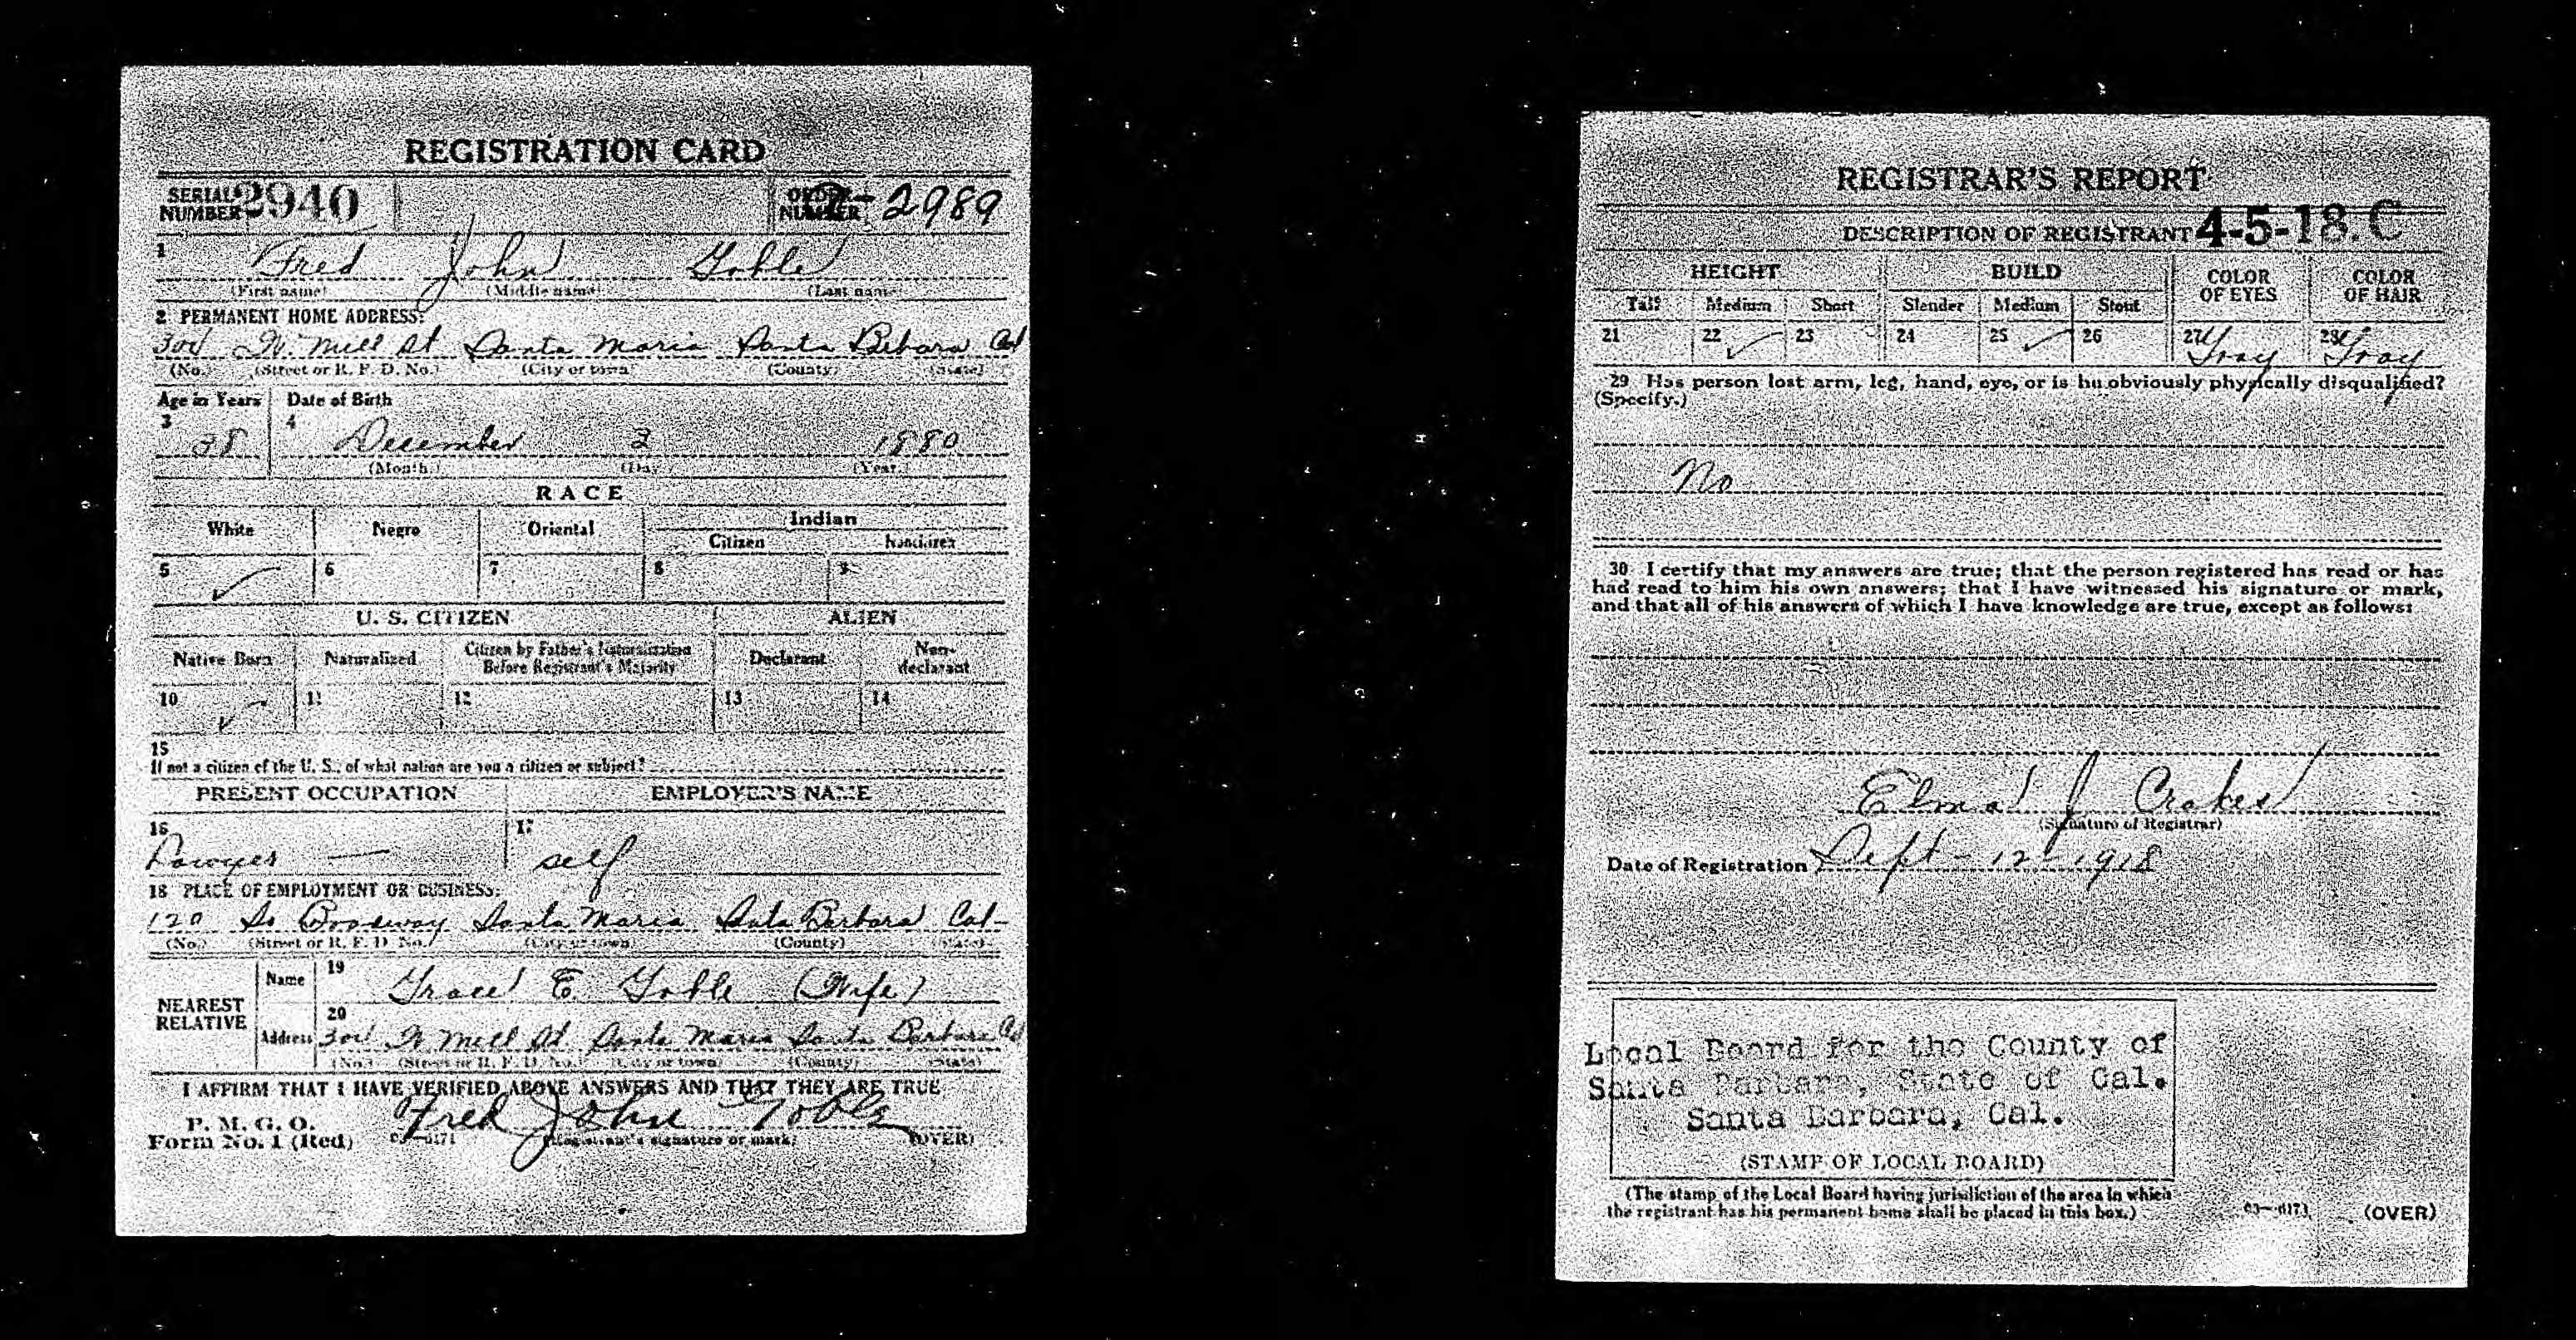 REGISTRATION CARD
SERIAL NUMBER 2940
ORDER NUMBER 2989
1 Fred John Goble
(First name) (Middle name) (Last name)
2 PERMANENT HOME ADDRESS:
W. Mill St Santa Maria Santa Bebara Cal
(No.) (Street or R. F. D. No.) (City or town) (County) (State)
Age in Years Date of Birth
3 38 4 December 2 1880
(Month.) (Day.) (Year.)
RACE
White Negro Oriental Indian
Citizen Noncitizen
5 ✓ 6 7 8 9
U. S. CITIZEN ALIEN
Native Born Naturalized Citizen by Father's Naturalization Before Registrant's Majority Declarant Non-declarant
10 ✓ 11 12 13 14
15
If not a citizen of the U. S., of what nation are you a citizen or subject?
PRESENT OCCUPATION EMPLOYER'S NAME
16 Lawyer — 17 self
18 PLACE OF EMPLOYMENT OR BUSINESS:
120 So Broadway Santa Maria Santa Barbara Cal-
(No.) (Street or R. F. D. No.) (City or town) (County) (State)
NEAREST RELATIVE Name 19 Grace E. Goble (Wife)
Address 20 W Mill St Santa Maria Santa Barbara Cal
(No.) (Street or R. F. D. No.) (City or town) (County) (State)
I AFFIRM THAT I HAVE VERIFIED ABOVE ANSWERS AND THAT THEY ARE TRUE
P. M. G. O.
Form No. 1 (Red) 03—6171 Fred John Goble
(Registrant's signature or mark) (OVER)
REGISTRAR'S REPORT
4-5-18. C
DESCRIPTION OF REGISTRANT
HEIGHT BUILD COLOR OF EYES COLOR OF HAIR
Tall Medium Short Slender Medium Stout
21 22 ✓ 23 24 25 ✓ 26 27 Gray 28 Gray
29 Has person lost arm, leg, hand, eye, or is he obviously physically disqualified?
(Specify.)
No
30 I certify that my answers are true; that the person registered has read or has
had read to him his own answers; that I have witnessed his signature or mark,
and that all of his answers of which I have knowledge are true, except as follows:
J Crakes
(Signature of Registrar)
Date of Registration Sept - 12 - 1918
Local Board for the County of
Santa Barbara, State of Cal.
Santa Barbara, Cal.
(STAMP OF LOCAL BOARD)
(The stamp of the Local Board having jurisdiction of the area in which
the registrant has his permanent home shall be placed in this box.)
03—6171 (OVER)